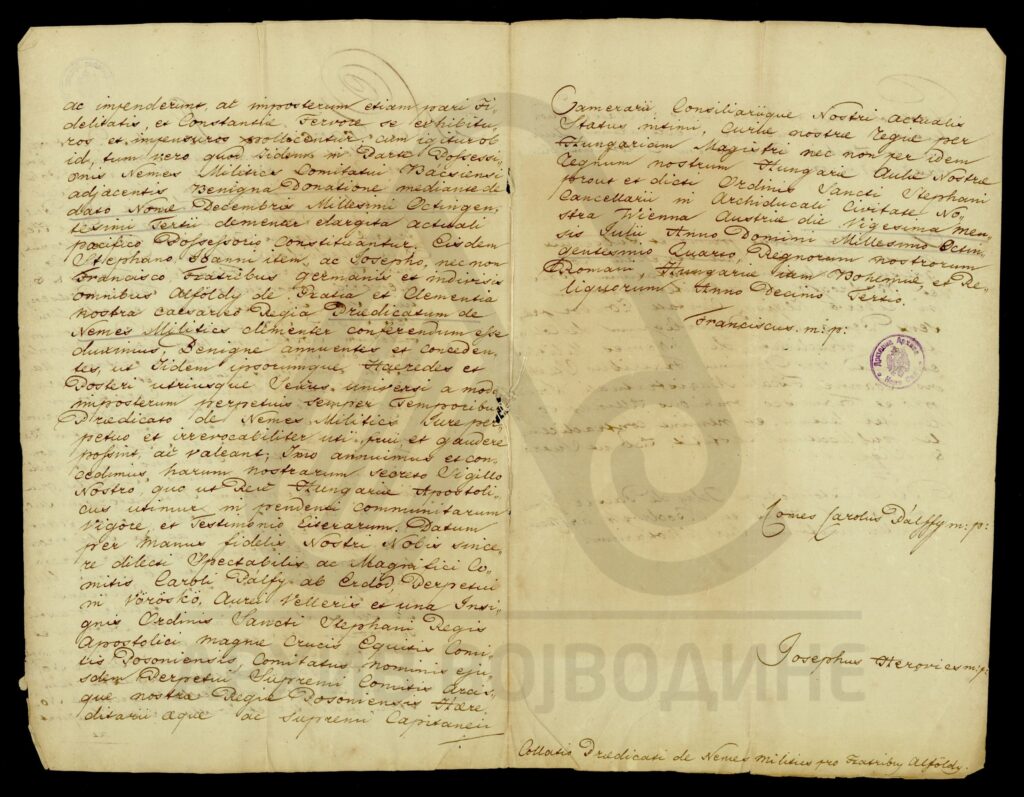 ac impenderunt, at imposterum etiam pari Fi-
delitatis, et Constantiæ Fervore se exhibitu-
ros et impensuros pollicentur; cum igitur ob
id, tum vero quod iidem in Parte Possessi-
onis Nemes Militics Comitatui Bácsiensi
adjacentis Benigna Donatione mediante de
dato Nonæ Decembris Millesimi Octingen-
tesimi Tertii clementer elargita actuali
pacifico Possessorio Constituantur. Eisdem
Stephano, Joanni item, ac Josepho, nec non
Francisco Fratribus germanis et indivisis
omnibus Alföldy de Gratia et Clementia
nostra caesareo Regia Prædicatum de
Nemes Militics clementer conferendum esse
duximus, Benigne annuentes et conceden-
tes, ut Iidem ipsorumque Hæredes et
Posteri utriusque Sexus universi a modo
imposterum perpetuis semper Temporibus
Prædicato de Nemes Militics Jure per-
petuo et irrevocabiliter uti, frui, et gaudere
possint, ac valeant; Imo annuimus et con-
cedimus, harum nostrarum Secreto Sigillo
Nostro, quo ut Rex Hungariæ Apostoli-
cus utimur in pendenti communitarum
Vigore, et Testimonio Literarum. Datum
per Manus fidelis Nostri Nobis since-
re dilecti Spectabilis ac Magnifici Co-
mitis Caroli Pálfy ab Erdőd, Perpetui
in Vöröskő, Aurei Velleris et una Insi-
gnis Ordinis Sancti Stephani Regis
Apostolici magnæ Crucis Equitis Comi-
tis Posoniensis, Comitatus nominis eju-
sdem Perpetui Supremi Comitis Arcis-
que nostræ Regiæ Posoniensis Hære-
ditarii æque ac Supremi Capitanei
Camerarii Consiliariique Nostri actualis
Status intimi, Curiæ nostræ Regiæ per
Hungariam Magistri nec non per idem
Regnum nostrum Hungariæ Aulæ Nostræ
prout et dicti Ordinis Sancti Stephani
Cancellarii in Archiducali Civitate No-
stra Vienna Austriæ die Vigesima men-
sis Julii Anno Domini Millesimo Octin-
gentesimo Quarto, Regnorum nostrorum
Romani, Hungariæ item Bohemiæ, et Re-
liquorum Anno Decimo Tertio.
Franciscus m: p:
Comes Carolus Pálffy m: p:
Josephus m: p:
Collatio Prædicati de Nemes Militics pro Fratribus Alföldy.
АРХИВ ВОЈВОДИНЕ